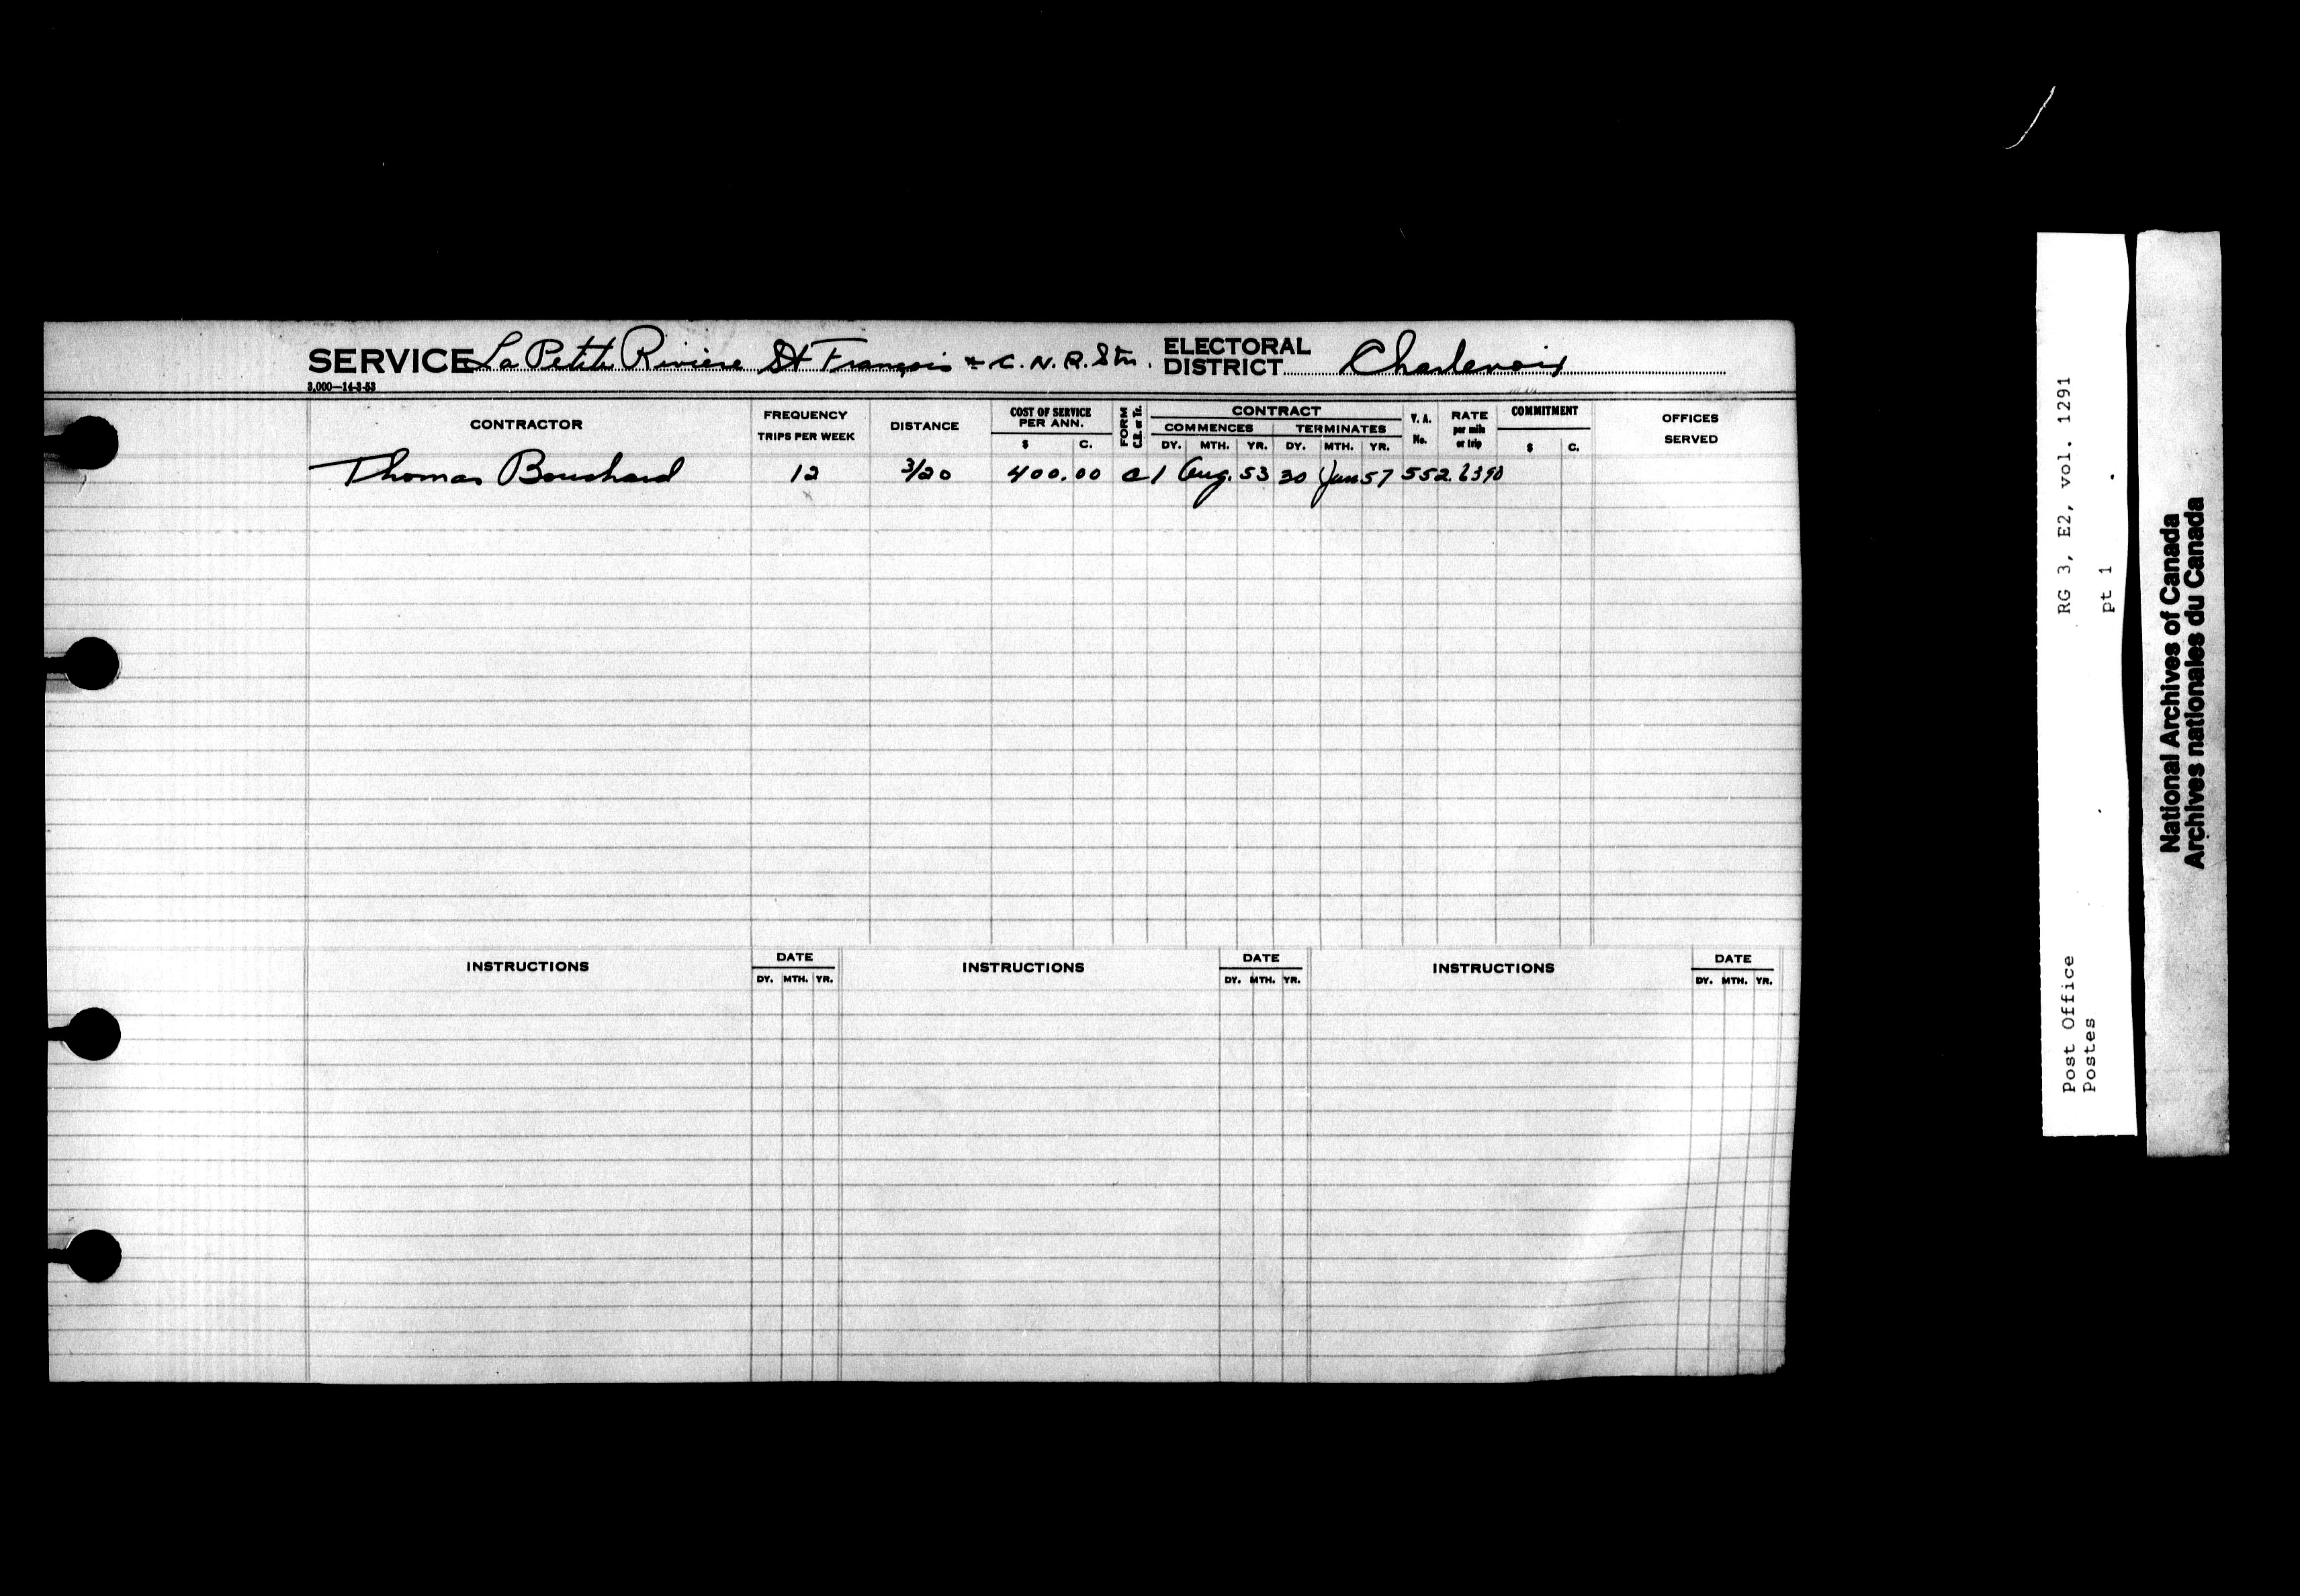 SERVICE La Petite Riviere St François & C.N.R. Stn. ELECTORAL DISTRICT Charlevoix
3,000—14-3-53
CONTRACTOR FREQUENCY TRIPS PER WEEK DISTANCE COST OF SERVICE PER ANN. $ C. FORM C.E. or Tr. CONTRACT COMMENCES DY. MTH. YR. TERMINATES DY. MTH. YR. V. A. No. RATE per mile or trip COMMITMENT $ C. OFFICES SERVED
Thomas Bouchard 12 3/20 400.00 C 1 Aug. 53 30 Jun 57 552 .6390
INSTRUCTIONS DATE DY. MTH. YR. INSTRUCTIONS DATE DY. MTH. YR. INSTRUCTIONS DATE DY. MTH. YR.
Post Office RG 3, E2, vol. 1291
Postes pt 1
National Archives of Canada
Archives nationales du Canada